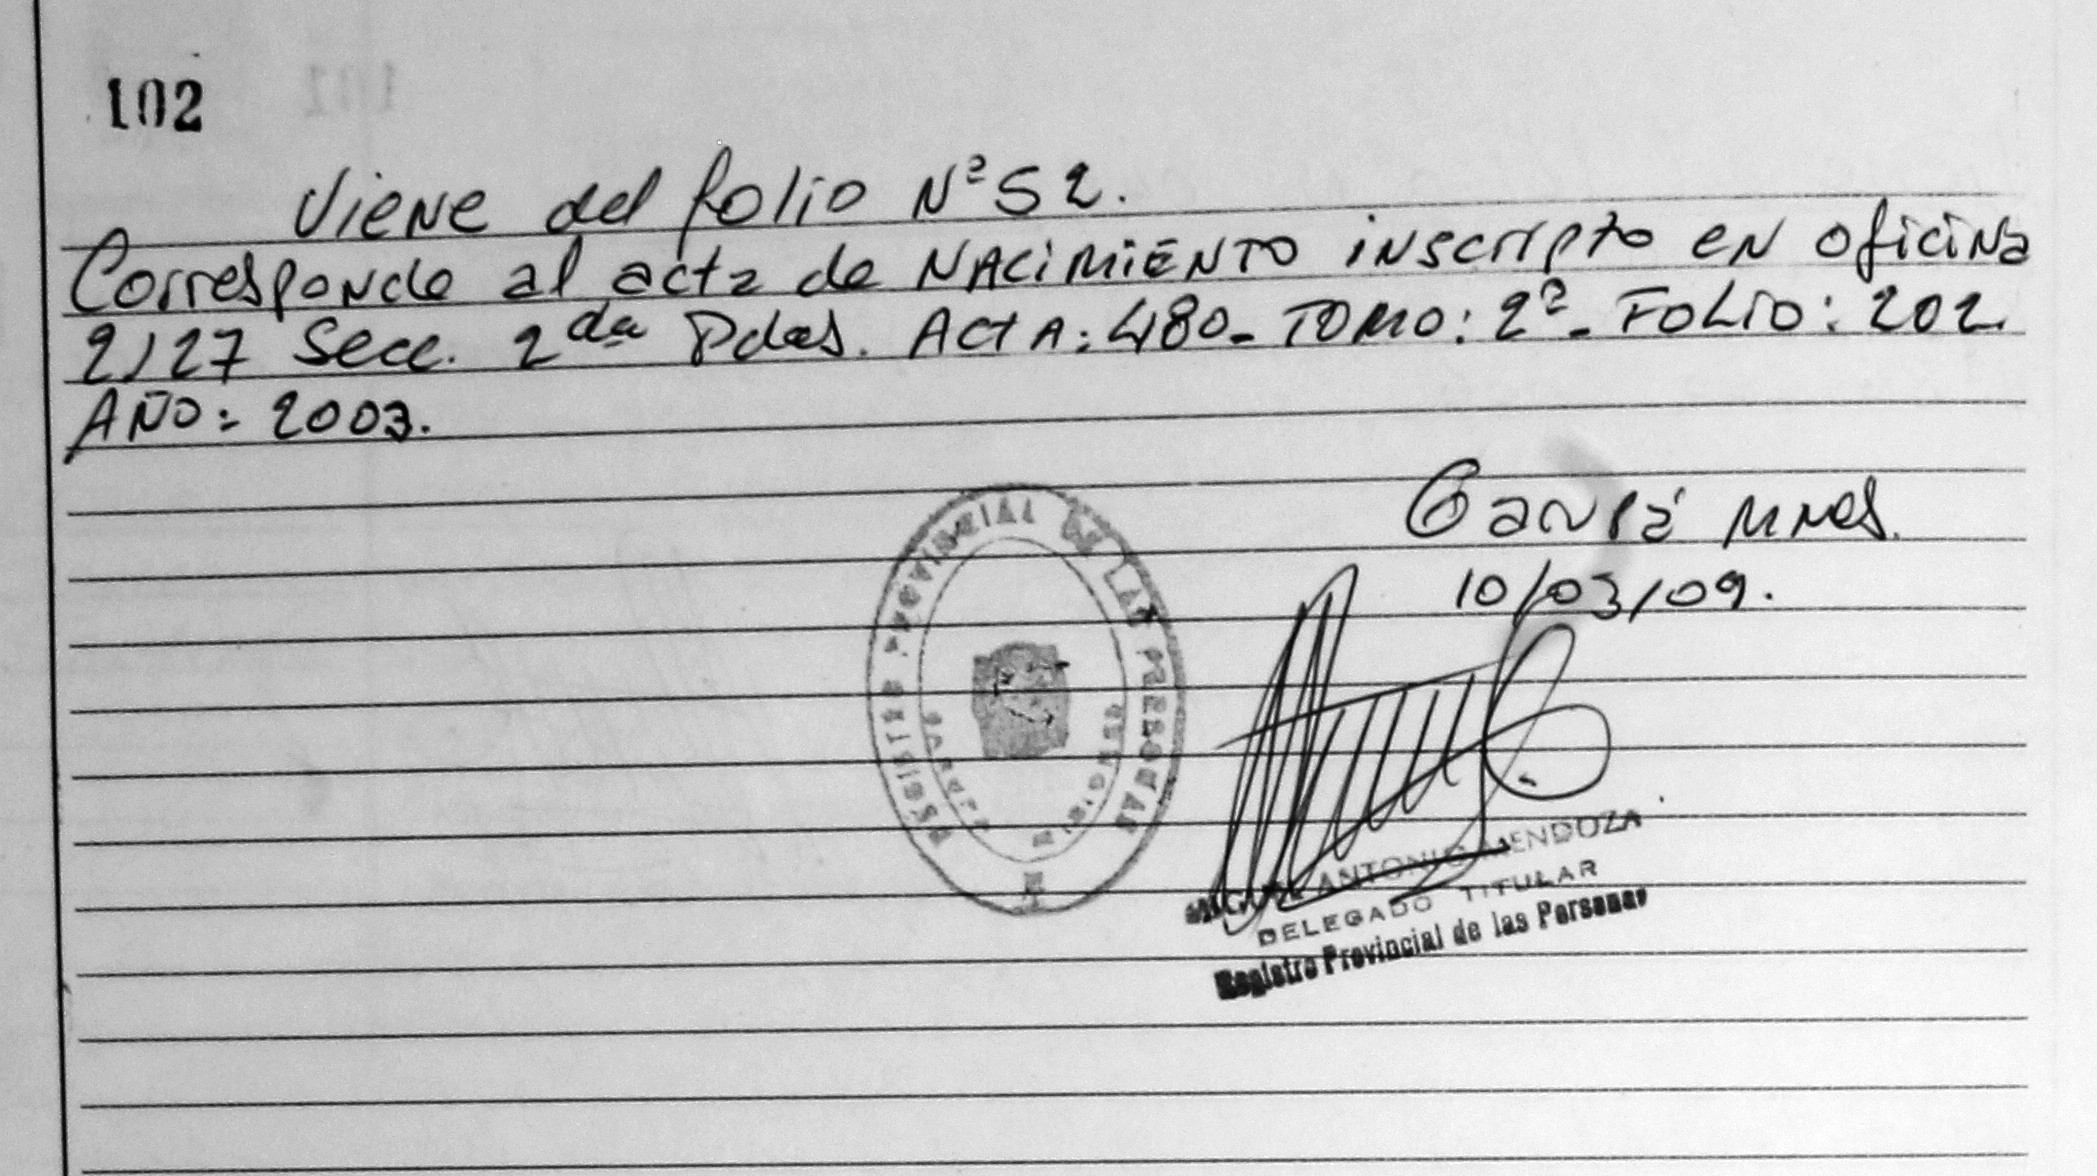 102
Viene del folio Nº 52.
Corresponde al acta de NACIMIENTO inscripto en oficina
2127 Secc. 2da Pdas. ACTA: 480 - TOMO: 2º - FOLIO: 202.
AÑO: 2003.
Garupá Mnes.
10/03/09.
REGISTRO PROVINCIAL DE LAS PERSONAS
GARUPA
MISIONES
MIGUEL ANTONIO MENDOZA
DELEGADO TITULAR
Registro Provincial de las Personas